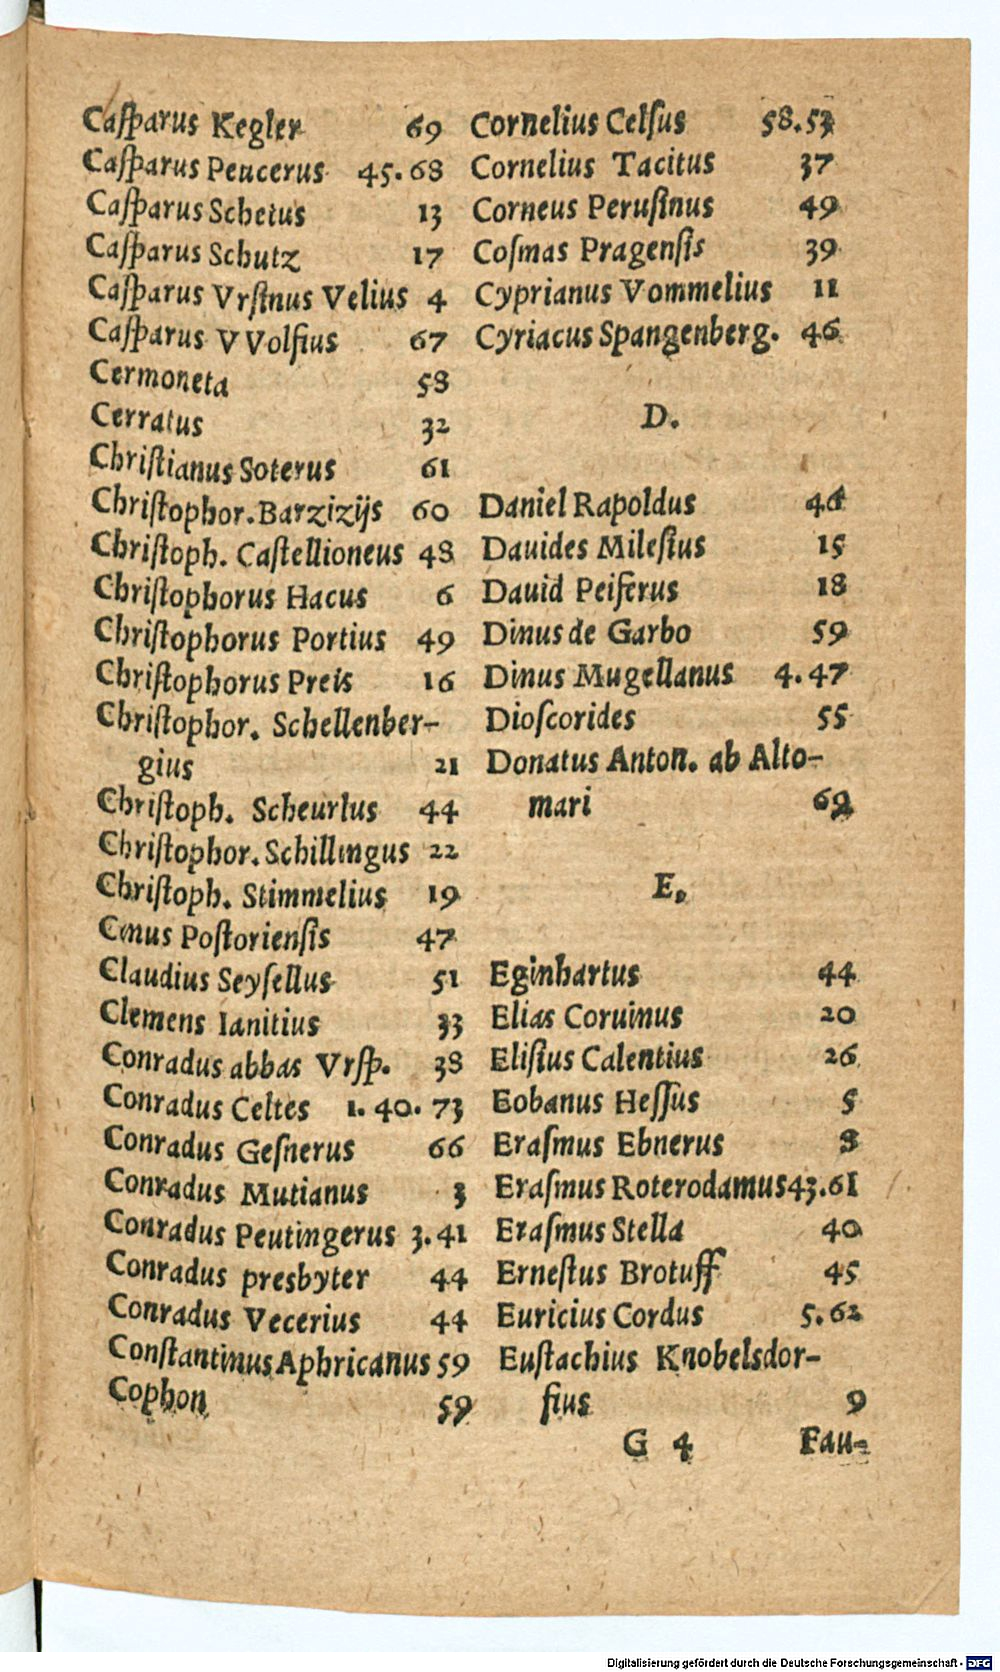 Caſparus Kegler 69
Caſparus Peucerus 45. 68
Caſparus Schetus 13
Caſparus Schutz 17
Caſparus Vrſinus Velius 4
Caſparus VVolfius 67
Cermoneta 58
Cerratus 32
Chriſtianus Soterus 61
Chriſtophor. Barzizijs 60
Chriſtoph. Caſtellioneus 48
Chriſtophorus Hacus 6
Chriſtophorus Portius 49
Chriſtophorus Preis 16
Chriſtophor. Schellenber-
gius 21
Chriſtoph. Scheurlus 44
Chriſtophor. Schillingus 22
Chriſtoph. Stimmelius 19
Cinus Poſtorienſis 47
Claudius Seyſellus 51
Clemens Ianitius 33
Conradus abbas Vrſp. 38
Conradus Celtes 1. 40. 73
Conradus Geſnerus 66
Conradus Mutianus 3
Conradus Peutingerus 3. 41
Conradus presbyter 44
Conradus Vecerius 44
Conſtantinus Aphricanus 59
Cophon 59
Cornelius Celſus 58. 53
Cornelius Tacitus 37
Corneus Peruſinus 49
Coſmas Pragenſis 39
Cyprianus Vommelius 11
Cyriacus Spangenberg. 46
D.
Daniel Rapoldus 46
Dauides Mileſius 15
Dauid Peiferus 18
Dinus de Garbo 59
Dinus Mugellanus 4. 47
Dioſcorides 55
Donatus Anton. ab Alto-
mari 69
E.
Eginhartus 44
Elias Coruinus 20
Eliſius Calentius 26
Eobanus Heſſus 5
Eraſmus Ebnerus 8
Eraſmus Roterodamus 43. 61
Eraſmus Stella 40
Erneſtus Brotuff 45
Euricius Cordus 5. 62
Euſtachius Knobelsdor-
fius 9
G 4 Fau-
Digitalisierung gefördert durch die Deutsche Forschungsgemeinschaft - DFG